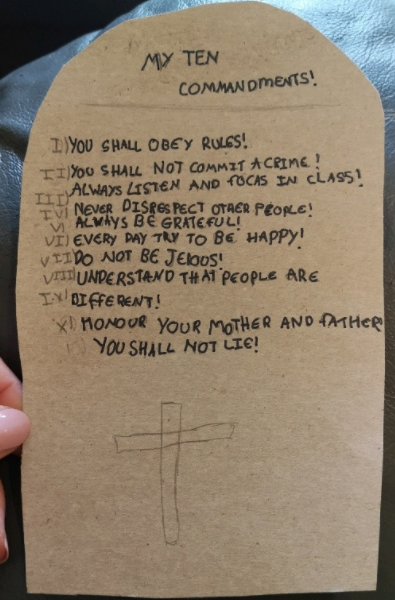 MY TEN
COMMANDMENTS!
I) YOU SHALL OBEY RULES!
II) YOU SHALL NOT COMMIT A CRIME!
ALWAYS LISTEN AND FOCAS IN CLASS!
III) NEVER DISRESPECT OTHER PEOPLE!
IV) ALWAYS BE GRATEFUL!
V)
VI) EVERY DAY TRY TO BE HAPPY!
VII) DO NOT BE JELOUS!
VIII) UNDERSTAND THAT PEOPLE ARE
IX) DIFFERENT!
X) HONOUR YOUR MOTHER AND FATHER
YOU SHALL NOT LIE!